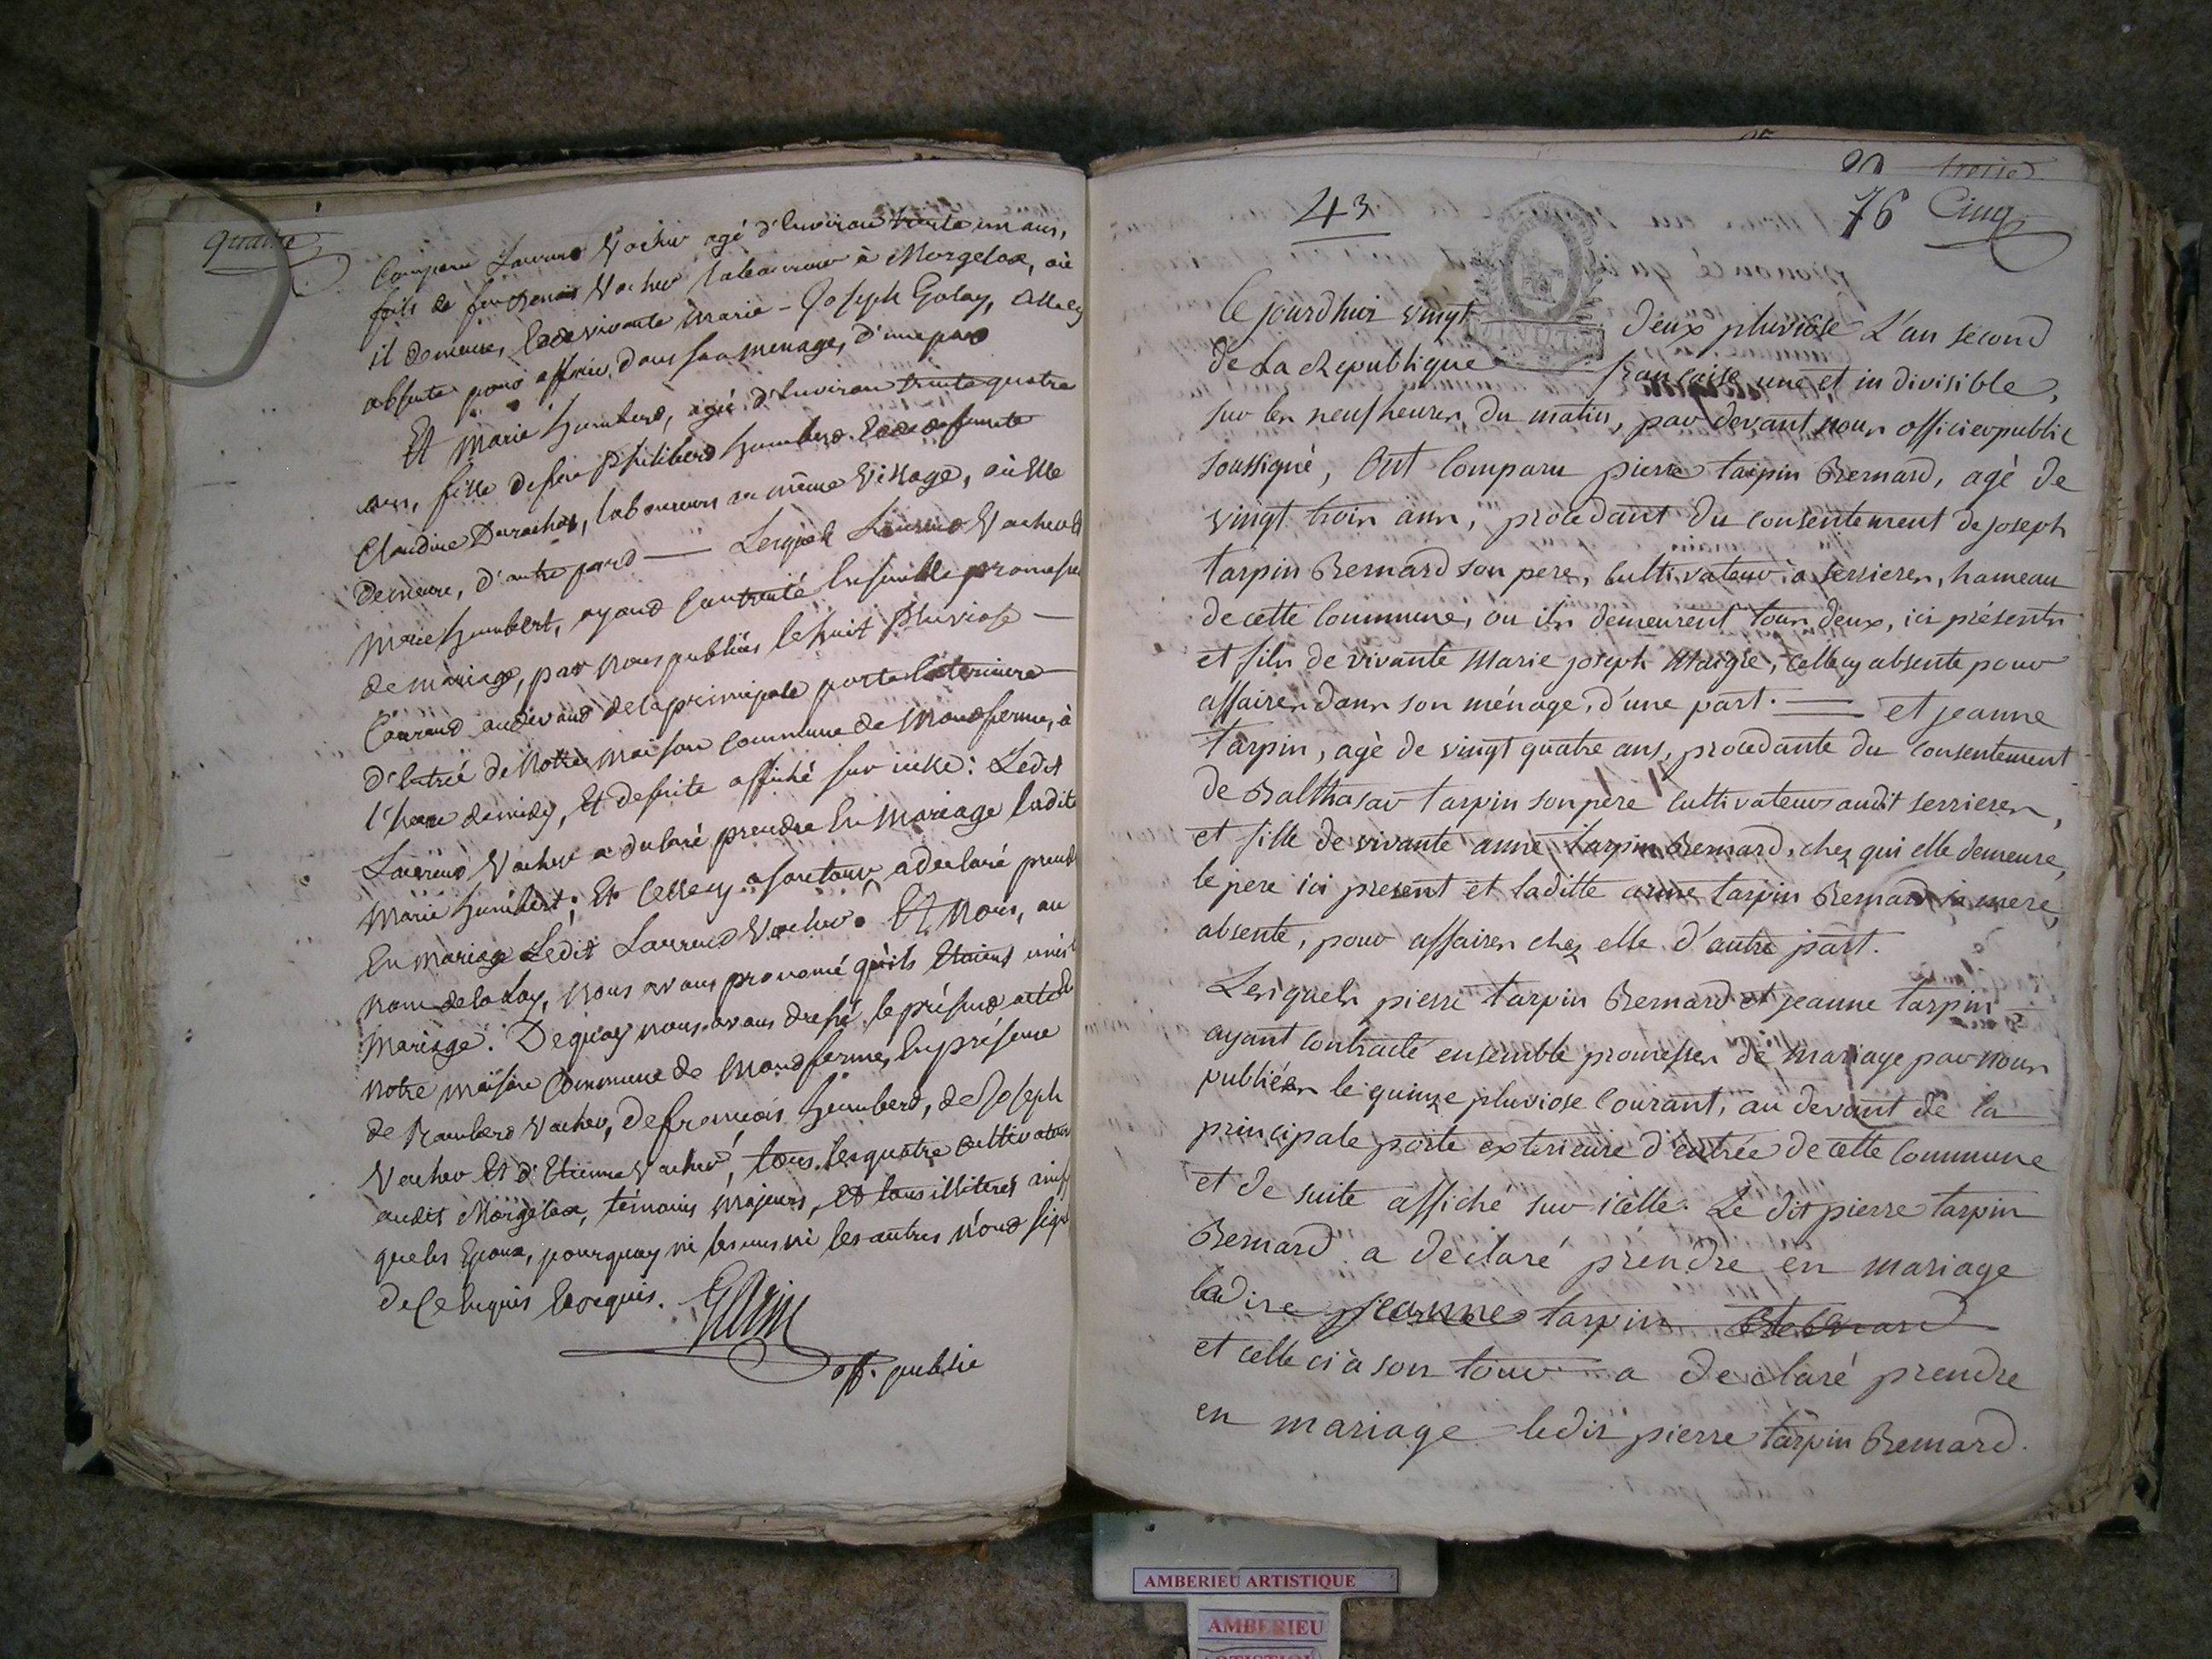 quatre
Comparu Laurend Vacher agé d'Environ trente un ans,
fils de feu Denis Vacher laboureur à Morgelas, où
il demeure, Et de vivante Marie-Joseph Golay, Cellecy
absente pour affaire dans son menage, d'une pard
Et Marie humberd, agée d'Environ trente quatre
ans, fille de feu Philiberd humberd Et de defunte
Claudine Durochat, laboureurs au même Village, où Elle
demeure, d'autre pard — Lesquels Laurend Vacher Et
Marie humbert, ayand Contracté Ensemble promesses
de mariage, par nous publiées le huit Pluviose —
Courand audevand de la principale porte Exterieure —
d'Entrée de Notre maison Commune de Mondferme, à
l'heure de midy, Et de suite affiché sur icelle: Ledit
Laurend Vacher a declaré prendre En Mariage ladite
Marie humbert; Et Cellecy a son tour, a declaré prendre
En mariage Ledit Laurend Vacher. Et Nous, au
nom de la Loy, nous avons prononcé qu'ils Etoient unis
mariage. De quoy nous avons dressé le présend acte
notre maison Commune de Mondferme, En présence
de Ramberd Vacher, de francois humberd, de Joseph
Vacher Et d'Etienne Vacher, tous les quatre cultivateurs
audit Morgelas, témoins Majeurs, Et tous illiteres ainsi
que les Epoux, pourquoy ni les uns ni les autres n'ond signé
de Ce Enquis Et requis.
off. public
troised
43
76 Cinq
Ce jourdhui vingt deux pluviôse L'an second
de La Republique francaise une et indivisible,
sur les neuf heures du matin, par devant nous officier public
soussigné, Ont Comparu pierre tarpin Bernard, agé de
vingt trois ans, procedant du consentement de joseph
tarpin Bernard son pere, cultivateur a serrieres, hameau
de cette Commune, ou ils demeurent tous deux, ici présents
et fils de vivante Marie joseph Maigre, Cellecy absente pour
affaires dans son ménage, d'une part. — et jeanne
tarpin, agé de vingt quatre ans, procedante du consentement
de Balthasar tarpin son père cultivateur audit serrieres,
et fille de vivante anne tarpin Bernard, chez qui elle demeure,
le pere ici present et laditte anne tarpin Bernard sa mere,
absente, pour affaires chez elle d'autre part.
Lesiquels pierre tarpin Bernard et jeanne tarpin
ayant Contracté ensemble promesses de mariage par nous
publiées le quinze pluviose Courant, au devant de la
principale porte exterieure d'entrée de cette Commune
et de suite affiché sur icelle. Le dit pierre tarpin
Bernard a declaré prendre en mariage
ladite jeanne tarpin
et celle ci à son tour a declaré prendre
en mariage ledit pierre tarpin Bernard.
AMBERIEU ARTISTIQUE
AMBERIEU
ARTISTIQUE